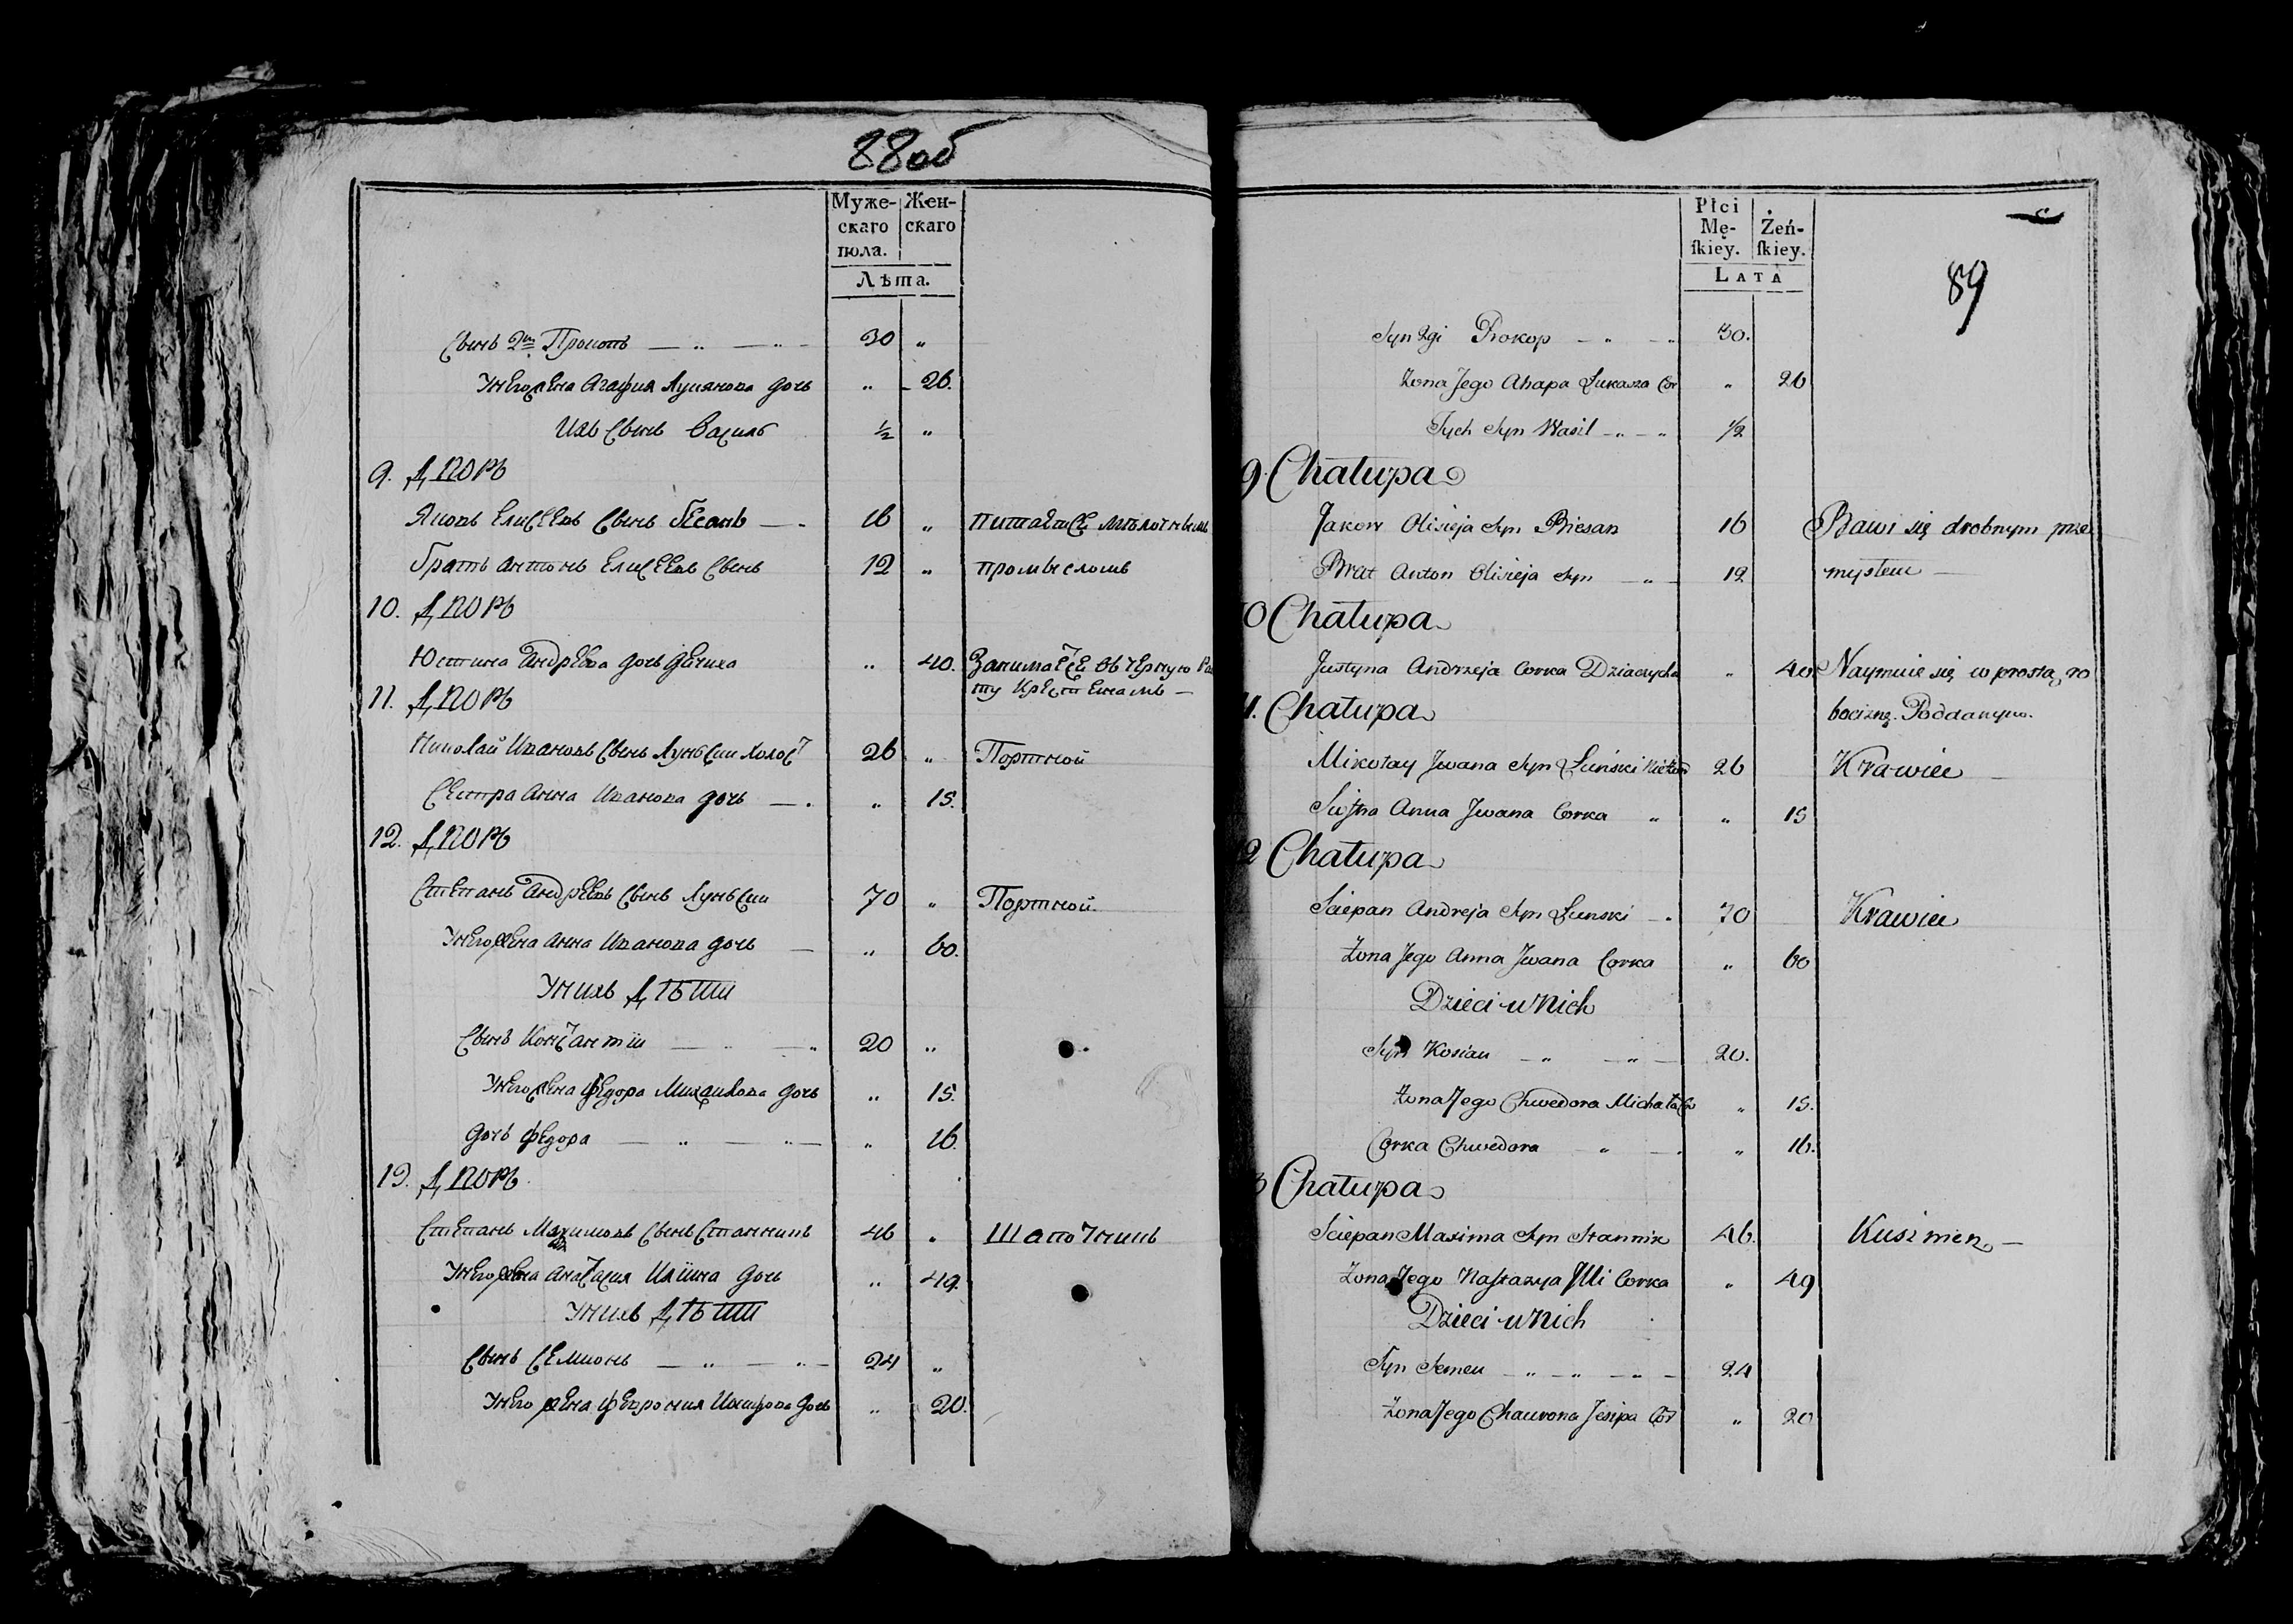 88об
Муже- Жен-
скаго скаго
пола.
Лѣта.
Сынъ 2й Прокопъ 30 „
У него жена Агафия Лукянова дочь „ 26.
Ихъ Сынъ Василь ½ „
9. Дворъ
Яковъ Елисеевъ Сынъ Бесанъ 16 „ питается мѣлочнымъ
Братъ Антонъ Елисеевъ Сынъ 12 „ промысломъ
10. Дворъ
Юстина Андреева дочь „ 40. Занимается въ черную Ра
ту Крестьенамъ
11. Дворъ
Николай Ивановъ Сынъ Луньски Холост 26 „ Портной
Сестра Анна Иванова дочь „ 15.
12. Дворъ
Степанъ Андреевъ Сынъ Луньски 70 „ Портной
У него жена Анна Иванова дочь „ 60.
У нихъ Дѣти
Сынъ Константiи 20 „
У него жена Федора Михайлова дочь „ 15.
дочь Федора „ 16.
13. Дворъ
Степанъ Максимовъ Сынъ Станникъ 46 „ Шапочникъ
У него жена Анастасия Илiина дочь „ 49.
У нихъ Дѣти
Сынъ Семионъ 24 „
У него жена Феврония Иосифова дочь „ 20.
Płci
Mę- Żeń-
ſkiey. ſkiey.
LATA
89
Syn 2gi Prokop 30.
Żona Jego Ahapa Łukasza Cor „ 26
Tych Syn Wasil ½
9. Chałupa
Jakow Olisieja Syn Biesan 16 Bawi się drobnym prze
Brat Anton Olisieja Syn 12 mysłem
10 Chałupa
Justyna Andrzeja Corka Dziaczycha „ 40 Naymuie się w prostą ro
11. Chałupa bociznę. Poddanym.
Mikołay Jwana Syn Łuński Nieżon 26 Krawiec
Siostra Anna Jwana Corka „ 15
2 Chałupa
Sciepan Andreja Syn Łunski 70 Krawiec
Żona Jego Anna Jwana Corka „ 60
Dzieci u Nich
Syn Kosian 20.
Żona Jego Chwedora Michała Co „ 15.
Corka Chwedora „ 16.
3 Chałupa
Sciepan Maxima Syn Stannik 46. Kusznierz
Żona Jego Nastazya Jlli Corka „ 49
Dzieci u Nich
Syn Semen 24
Żona Jego Chaurona Jesipa Cor „ 20